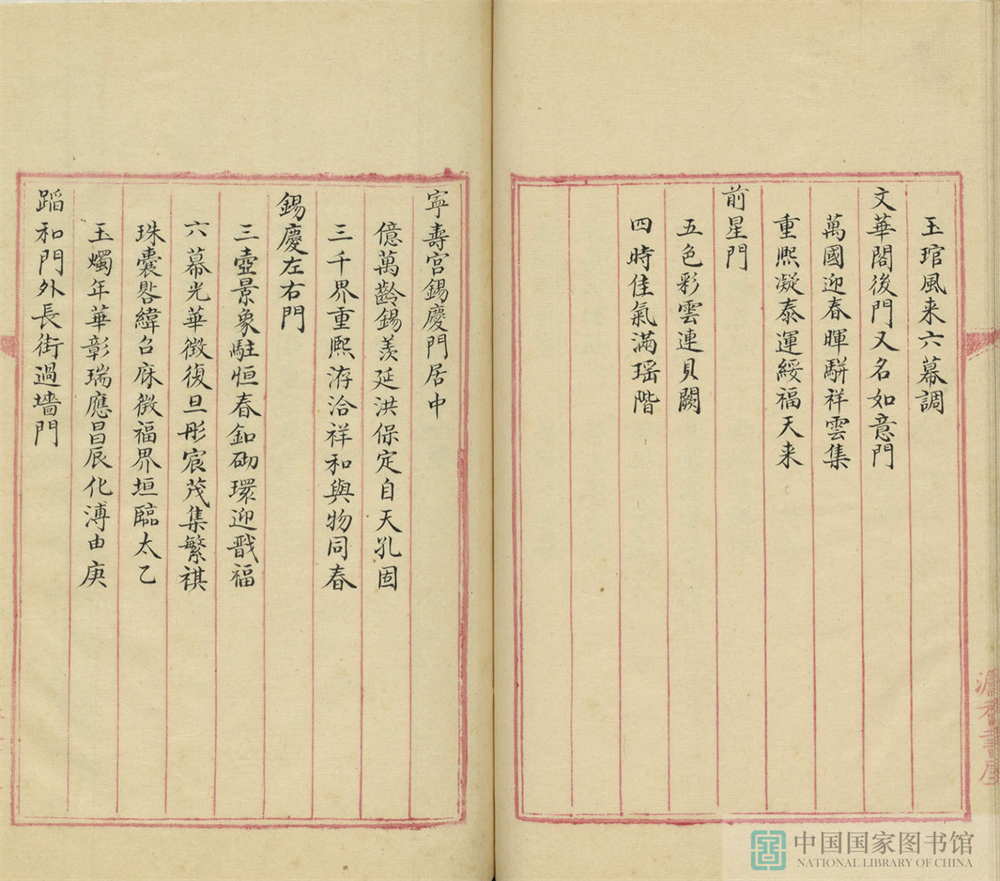 玉琯風来六幕調
文華閣後門又名如意門
萬國迎春暉駢祥雲集
重熙凝泰運綏福天来
前星門
五色彩雲連貝闕
四時佳氣滿瑶階
寧壽宫錫慶門居中
億萬齡錫羡延洪保定自天孔固
三千界重熙洊洽祥和與物同春
錫慶左右門
三壺景象駐恒春釦砌環迎戩福
六幕光華徴復旦彤宸茂集繁祺
珠囊晷緯召庥徴福界垣臨太乙
玉燭年華彰瑞應昌辰化溥由庚
蹈和門外長街過墻門
中国国家图书馆
NATIONAL LIBRARY OF CHINA